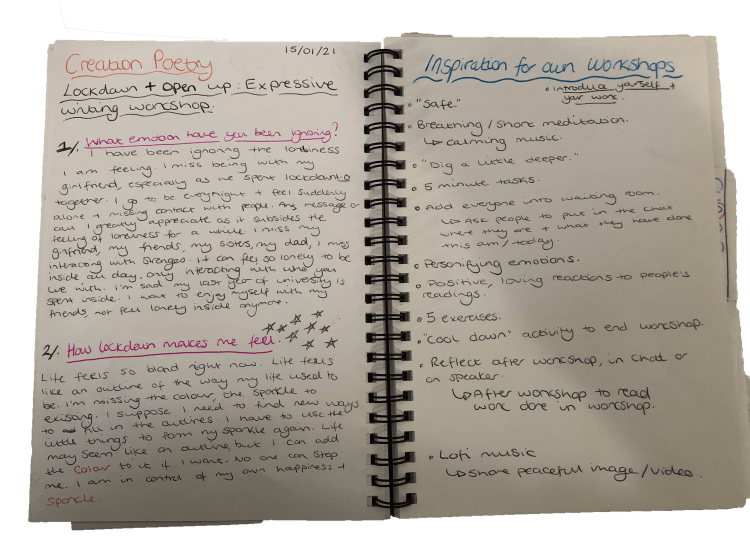 15/01/21
Creation Poetry
Lockdown + Open up: Expressive
writing workshop.
1/. What emotion have you been ignoring?
I have been ignoring the loneliness
I am feeling. I miss being with my
girlfriend, especially as we spent lockdown
together. I go to bed every night + feel suddenly
alone + missing contact with people. Any message or
call I greatly appreciate as it subsides the
feeling of loneliness for a while. I miss my
girlfriend, my friends, my sister, my dad, I miss
interacting with strangers. It can feel so lonely to be
inside all day. Only interacting with who you
live with. I'm sad my last year of university is
spent inside. I want to enjoy myself with my
friends, not feel lonely inside anymore.
2/. How lockdown makes me feel.
Life feels so bland right now. Life feels
like an outline of the way my life used to
be. I'm missing the colour, the sparkle to
existing. I suppose I need to find new ways
to fill in the outlines I have to use the
little things to form my sparkle again. Life
may seem like an outline, but I can add
the colour to it if I want. No one can stop
me. I am in control of my own happiness +
sparkle.
Inspiration for own workshops
• Introduce yourself +
your work.
• "Safe."
• Breathing / Short meditation.
↳ calming music.
• "Dig a little deeper."
• 5 minute tasks.
• Add everyone into waiting room.
↳ Ask people to put in the chat
where they are + what they have done
this am / today.
• Personifying emotions.
• Positive, loving reactions to people's
readings.
• 5 exercises.
• "Cool down" activity to end workshop.
• Reflect after workshop, in chat or
on speaker.
↳ After workshop to read
work done in workshop.
• Lofi music
↳ share peaceful image / video.